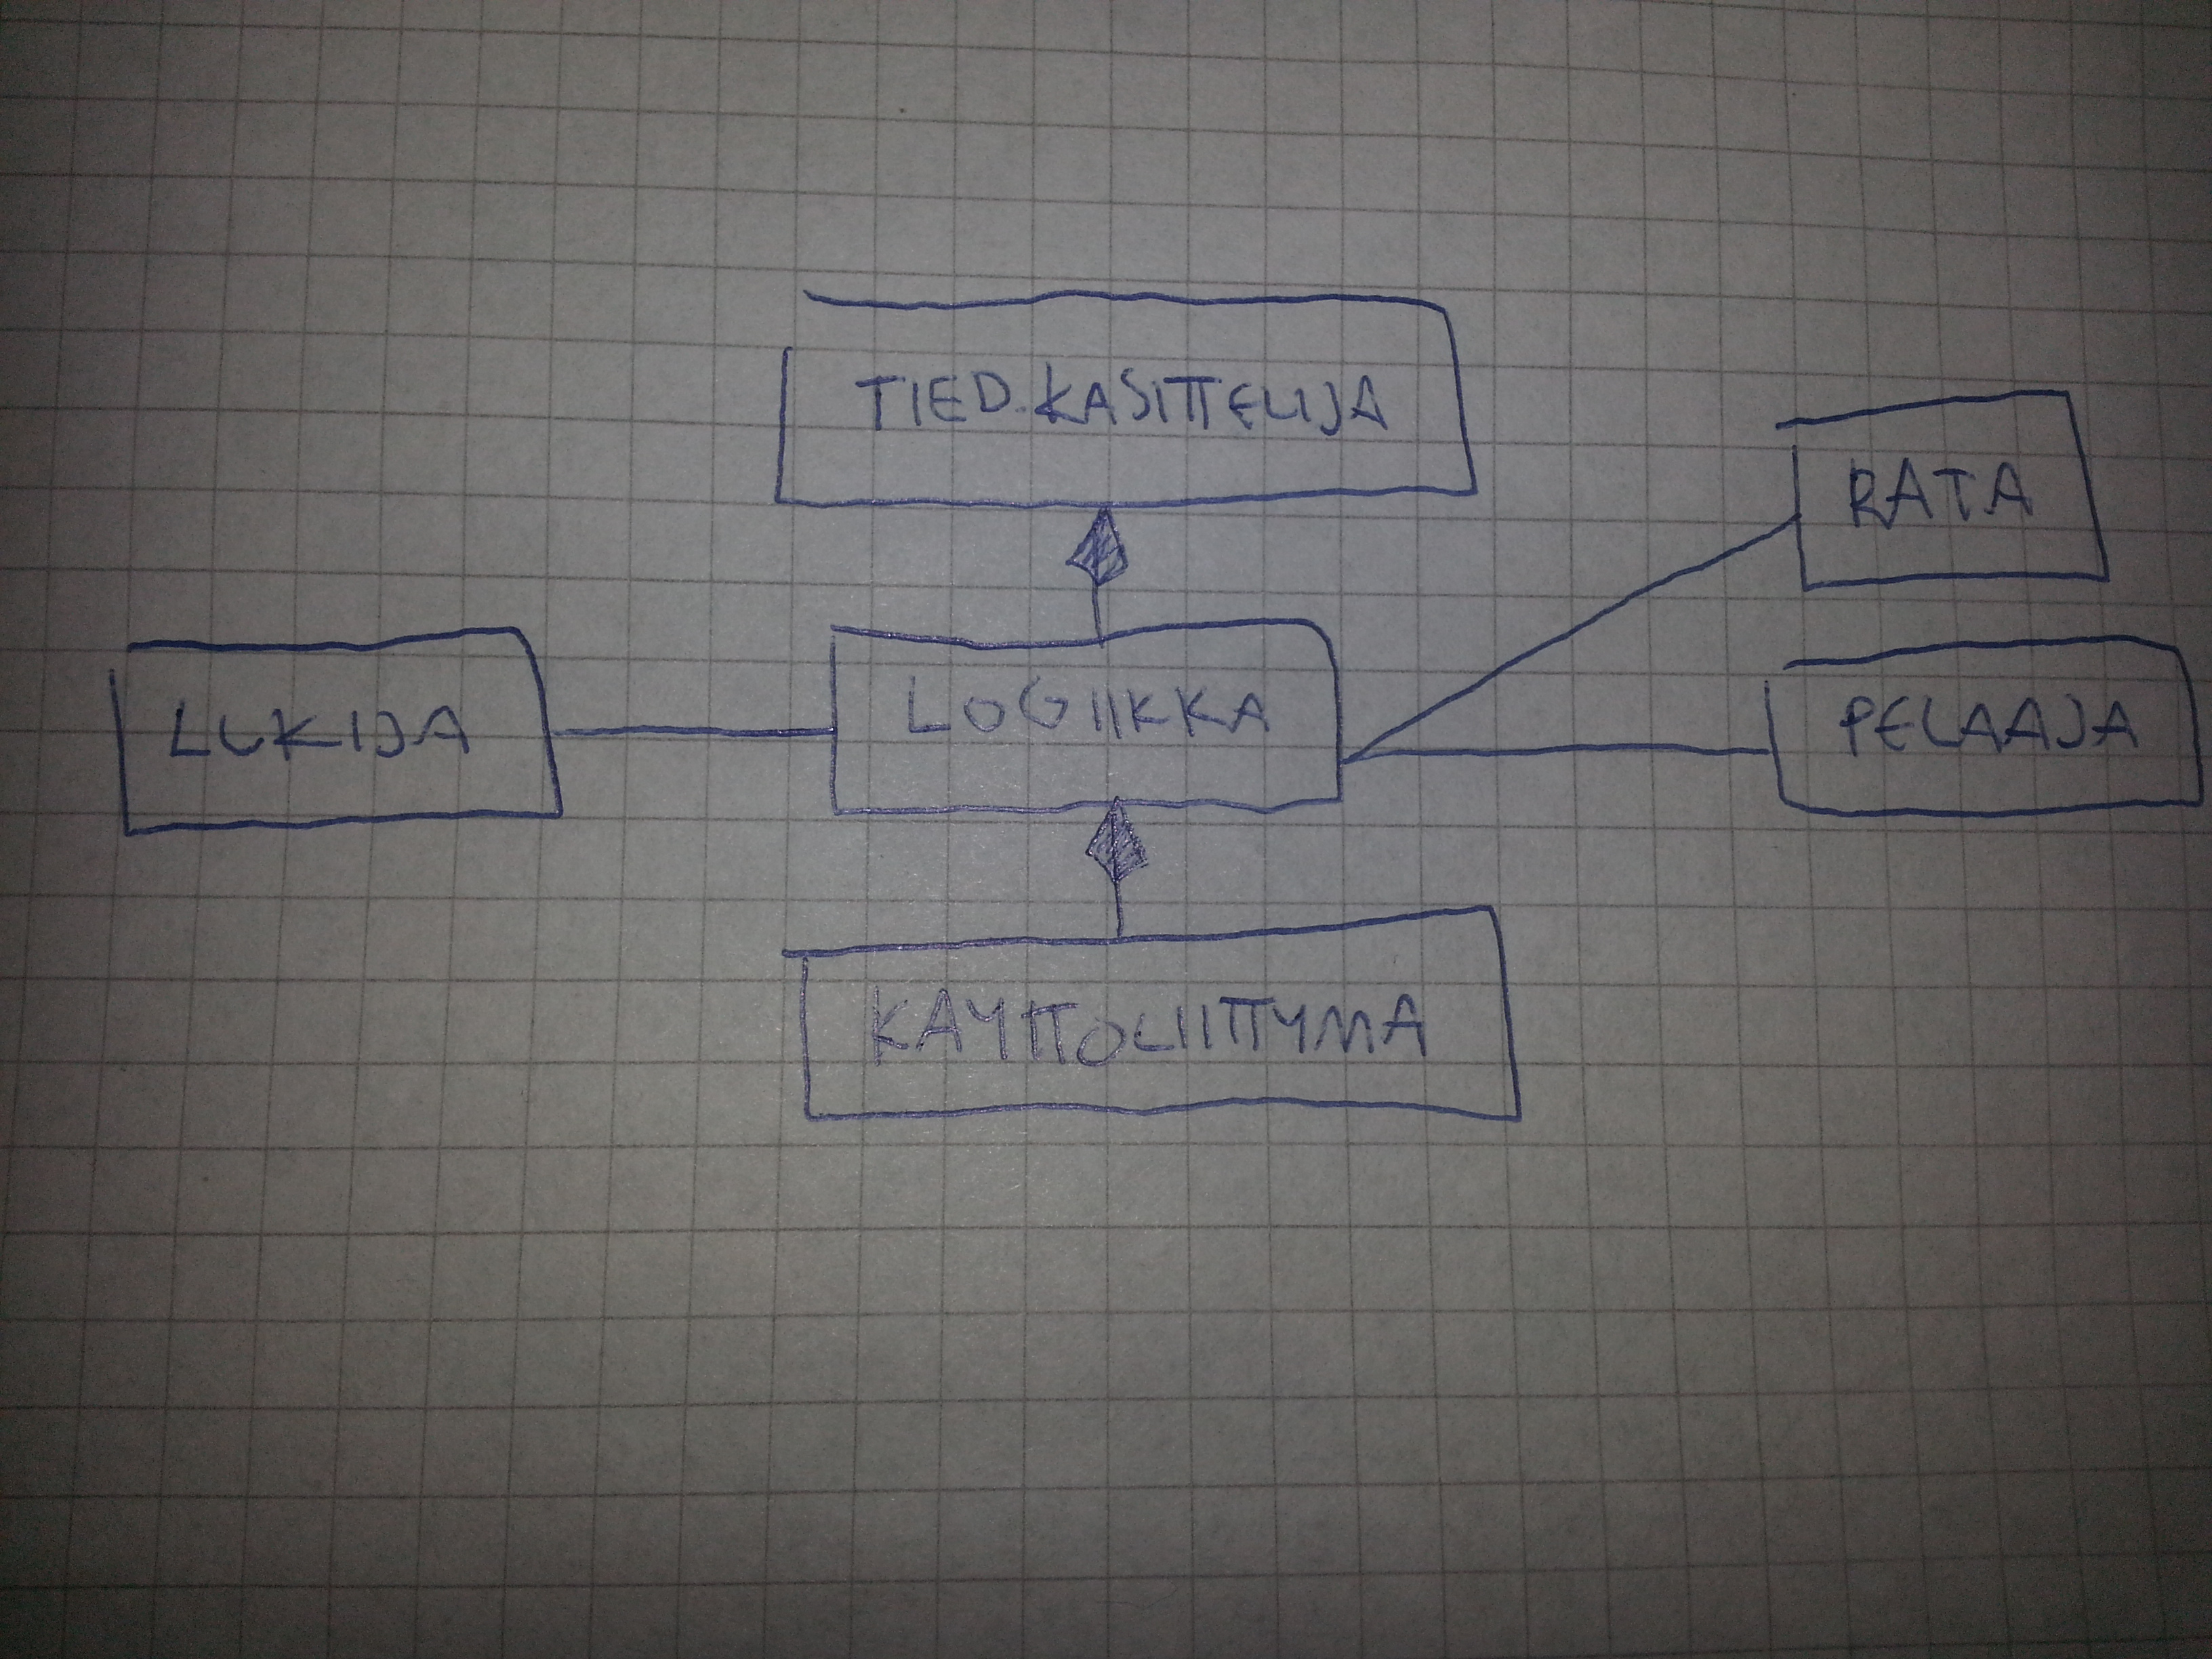 TIED.KASITTELIJA
RATA
LUKIJA
LOGIIKKA
PELAAJA
KAYTTOLIITTYMA